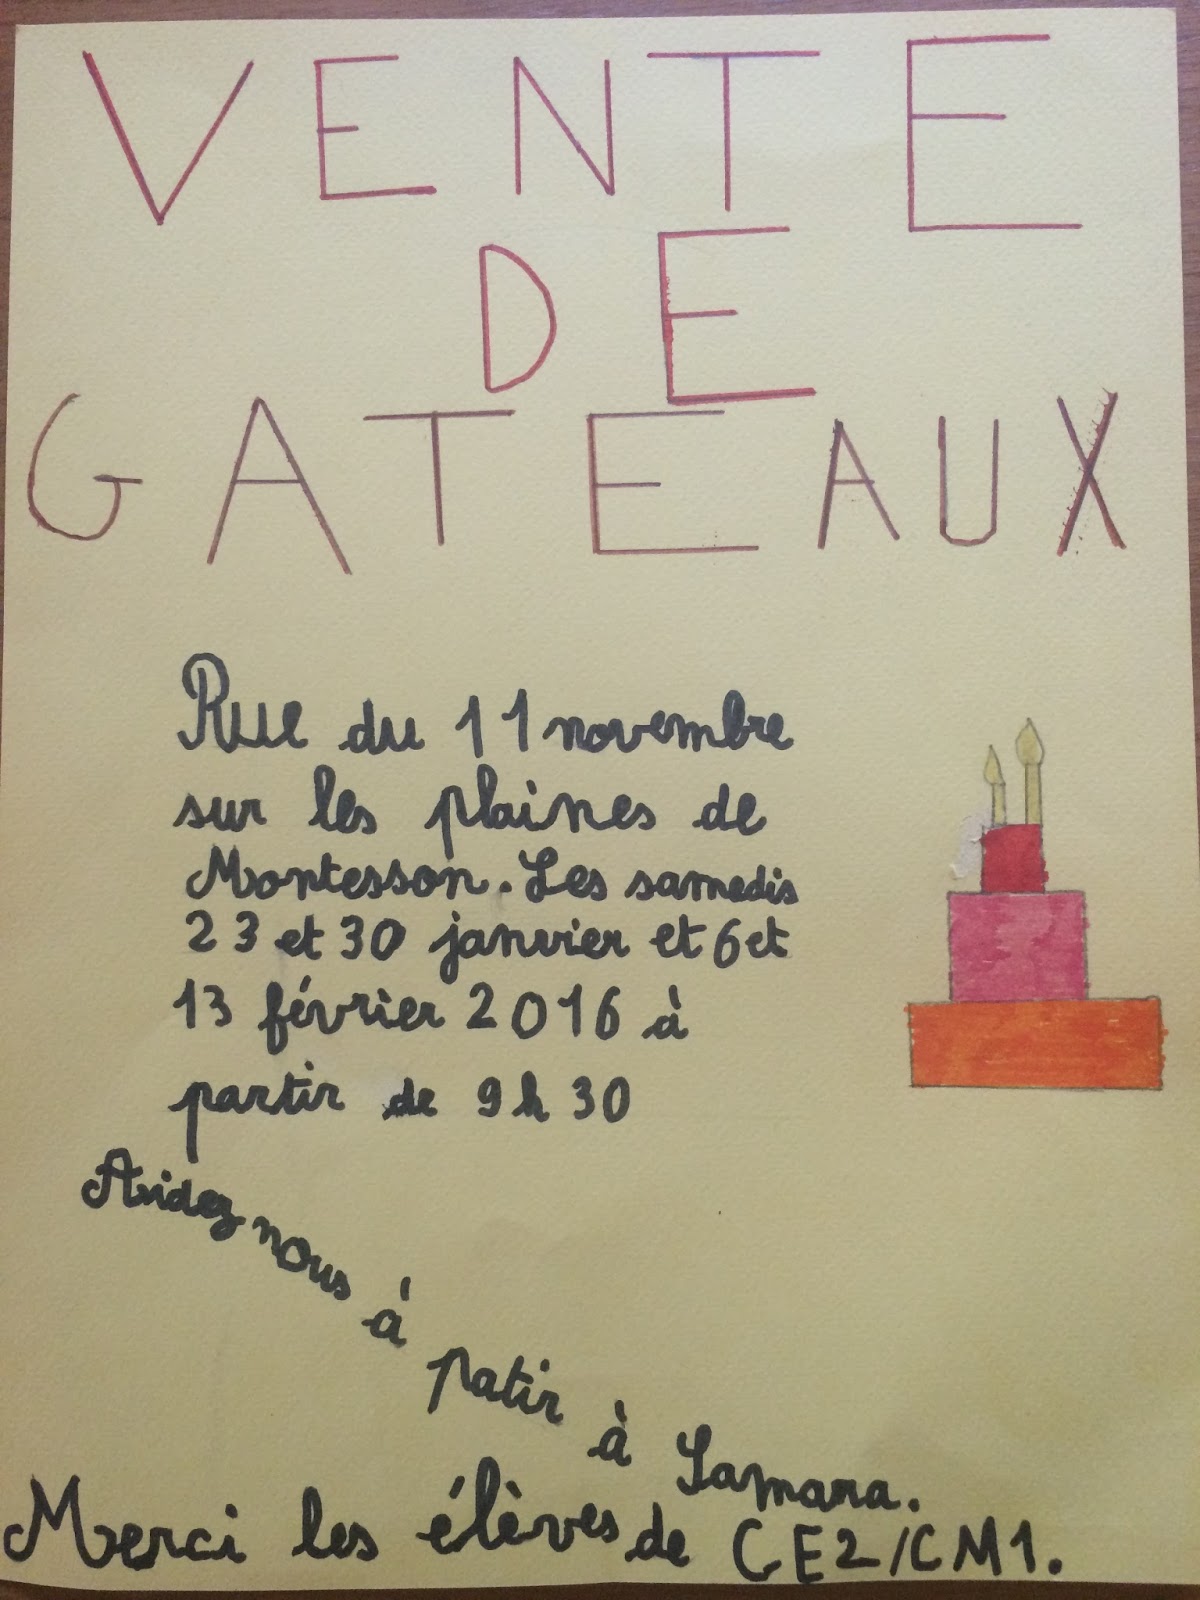 VENTE
DE
GATEAUX
Rue du 11 novembre
sur les plaines de
Montesson. Les samedis
23 et 30 janvier et 6 et
13 février 2016 à
partir de 9 h 30
Aidez nous à patir à Samara.
Merci les élèves de CE2/CM1.